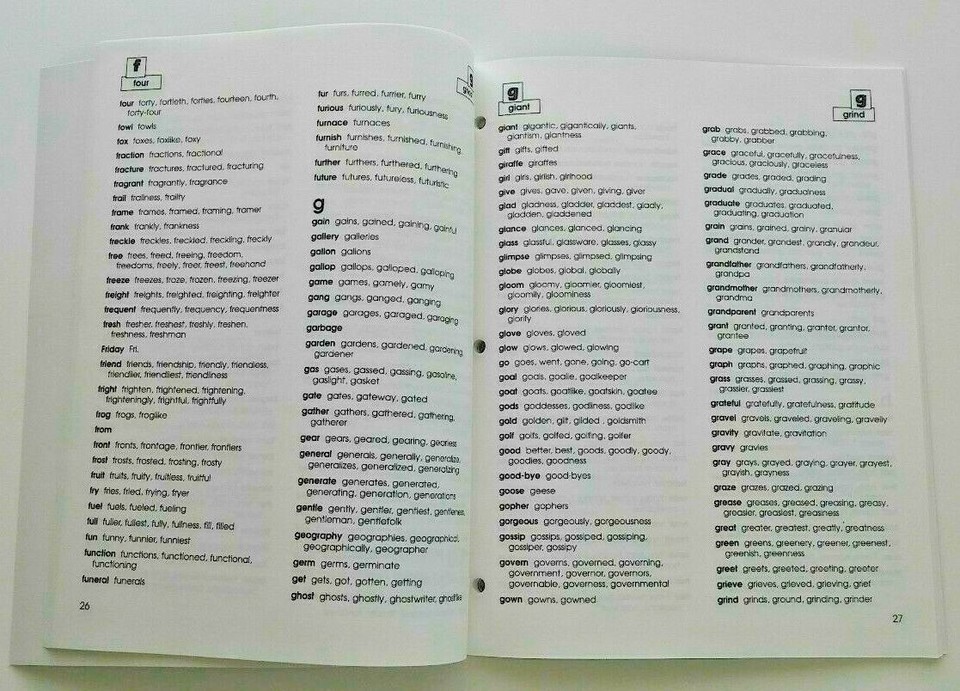 f
four
four forty, fortieth, forties, fourteen, fourth,
forty-four
fowl fowls
fox foxes, foxlike, foxy
fraction fractions, fractional
fracture fractures, fractured, fracturing
fragrant fragrantly, fragrance
frail frailness, frailty
frame frames, framed, framing, framer
frank frankly, frankness
freckle freckles, freckled, freckling, freckly
free frees, freed, freeing, freedom,
freedoms, freely, freer, freest, freehand
freeze freezes, froze, frozen, freezing, freezer
freight freights, freighted, freighting, freighter
frequent frequently, frequency, frequentness
fresh fresher, freshest, freshly, freshen,
freshness, freshman
Friday Fri.
friend friends, friendship, friendly, friendless,
friendlier, friendliest, friendliness
fright frighten, frightened, frightening,
frighteningly, frightful, frightfully
frog frogs, froglike
from
front fronts, frontage, frontier, frontiers
frost frosts, frosted, frosting, frosty
fruit fruits, fruity, fruitless, fruitful
fry fries, fried, frying, fryer
fuel fuels, fueled, fueling
full fuller, fullest, fully, fullness, fill, filled
fun funny, funnier, funniest
function functions, functioned, functional,
functioning
funeral funerals
26
g
fur furs, furred, furrier, furry
furious furiously, fury, furiousness
furnace furnaces
furnish furnishes, furnished, furnishing,
furniture
further furthers, furthered, furthering
future futures, futureless, futuristic
g
gain gains, gained, gaining, gainful
gallery galleries
gallon gallons
gallop gallops, galloped, galloping
game games, gamely, gamy
gang gangs, ganged, ganging
garage garages, garaged, garaging
garbage
garden gardens, gardened, gardening,
gardener
gas gases, gassed, gassing, gasoline,
gaslight, gasket
gate gates, gateway, gated
gather gathers, gathered, gathering,
gatherer
gear gears, geared, gearing, gearless
general generals, generally, generalize,
generalizes, generalized, generalizing
generate generates, generated,
generating, generation, generations
gentle gently, gentler, gentlest, gentleness,
gentleman, gentlefolk
geography geographies, geographical,
geographically, geographer
germ germs, germinate
get gets, got, gotten, getting
ghost ghosts, ghostly, ghostwriter, ghostlike
g
giant
giant gigantic, gigantically, giants,
giantism, giantness
gift gifts, gifted
giraffe giraffes
girl girls, girlish, girlhood
give gives, gave, given, giving, giver
glad gladness, gladder, gladdest, gladly,
gladden, gladdened
glance glances, glanced, glancing
glass glassful, glassware, glasses, glassy
glimpse glimpses, glimpsed, glimpsing
globe globes, global, globally
gloom gloomy, gloomier, gloomiest,
gloomily, gloominess
glory glories, glorious, gloriously, gloriousness,
glorify
glove gloves, gloved
glow glows, glowed, glowing
go goes, went, gone, going, go-cart
goal goals, goalie, goalkeeper
goat goats, goatlike, goatskin, goatee
gods goddesses, godliness, godlike
gold golden, gilt, gilded, goldsmith
golf golfs, golfed, golfing, golfer
good better, best, goods, goodly, goody,
goodies, goodness
good-bye good-byes
goose geese
gopher gophers
gorgeous gorgeously, gorgeousness
gossip gossips, gossiped, gossiping,
gossiper, gossipy
govern governs, governed, governing,
government, governor, governors,
governable, governess, governmental
gown gowns, gowned
g
grind
grab grabs, grabbed, grabbing,
grabby, grabber
grace graceful, gracefully, gracefulness,
gracious, graciously, graceless
grade grades, graded, grading
gradual gradually, gradualness
graduate graduates, graduated,
graduating, graduation
grain grains, grained, grainy, granular
grand grander, grandest, grandly, grandeur,
grandstand
grandfather grandfathers, grandfatherly,
grandpa
grandmother grandmothers, grandmotherly,
grandma
grandparent grandparents
grant granted, granting, granter, grantor,
grantee
grape grapes, grapefruit
graph graphs, graphed, graphing, graphic
grass grasses, grassed, grassing, grassy,
grassier, grassiest
grateful gratefully, gratefulness, gratitude
gravel gravels, graveled, graveling, gravelly
gravity gravitate, gravitation
gravy gravies
gray grays, grayed, graying, grayer, grayest,
grayish, grayness
graze grazes, grazed, grazing
grease greases, greased, greasing, greasy,
greasier, greasiest, greasiness
great greater, greatest, greatly, greatness
green greens, greenery, greener, greenest,
greenish, greenness
greet greets, greeted, greeting, greeter
grieve grieves, grieved, grieving, grief
grind grinds, ground, grinding, grinder
27